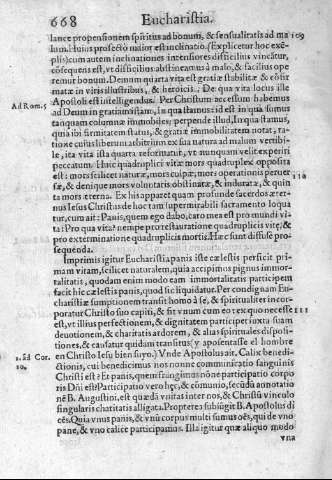 668 Eucharistia.
lance propensionem spiritus ad bonum, & sensualitatis ad ma 109
lum. Huius profecto maior est inclinatio. (Explicetur hoc exē-
plis) cum autem inclinationes intensiores difficilius vincātur,
cōsequens est, vt difficilius abstineamus à malo, & facilius ope
remur bonum. Demum quarta vita est gratiæ stabilitæ & cōfir
matæ in viris illustribus, & heroicis. De qua vita locus ille
Ad Rom. 5 Apostoli est intelligendus. Per Christum accessum habemus
ad Deum in gratiam istam, in qua stamus: id est in qua sumus
tanquam columnæ immobiles, perpende illud, In qua stamus,
quia ibi firmitatem status, & gratiæ immobilitatem notat, ra-
tione cuius liberum arbitrium ex sua natura ad malum vertibi-
le, ita vita ista quarta reformatur, vt nunquam velit experiri
peccatum. Huic quadruplici vitæ mors quadruplex opposita
est: mors scilicet naturæ, mors culpæ, mors operationis peruer 110
sæ, & denique mors voluntatis obstinatæ, & induratæ, & quin
ta mors æterna. Ex his apparet quam profunde sacerdos æter-
nus Iesus Christus de hoc tam supermirabili sacramento loqua
tur, cum ait: Panis, quem ego dabo, caro mea est pro mundi vi-
ta: Pro qua vita? nempe pro restauratione quadruplicis vitę, &
pro exterminatione quadruplicis mortis. Hæc sunt diffusè pro-
sequenda.
Imprimis igitur Eucharistia panis iste cælestis perficit pri-
mam vitam, scilicet naturalem, quia accipimus pignus immor-
talitatis, quodam enim modo eam immortalitatis participem
facit hic cælestis panis, quod sic liquidatur. Per condignam Eu
charistiæ sumptionem transit homo à se, & spiritualiter incor-
poratur Christo suo capiti, & fit vnum cum eo tex quo necesse 111
est, vt illius perfectionem, & dignitatem participet iuxta suam
deuotionem, & charitatis ardorem, & alias spirituales dispositi-
tiones, & causatur quidam transitus (y aposentasse el hombre
1. ad Cor. 10. en Christo Iesu bien suyo.) Vnde Apostolus ait. Calix benedi-
ctionis, cui benedicimus nos nonne communicatio sanguinis
Christi est? Et panis, quem frangimus nōne participatio corpo
ris Dñi est? Participatio vero hęc, & cōmunio, secūdū annotatio
nē B. Augustini, est quædā vnitas inter nos, & Christū vinculo
singularis charitatis alligata. Propterea subiūgit B. Apostolus di
cēs. Quia vnus panis, & vnū corpus multi sumus oēs, qui de vno
pane, & vno calice participamus. Illa igitur quæ aliquo modo
vna